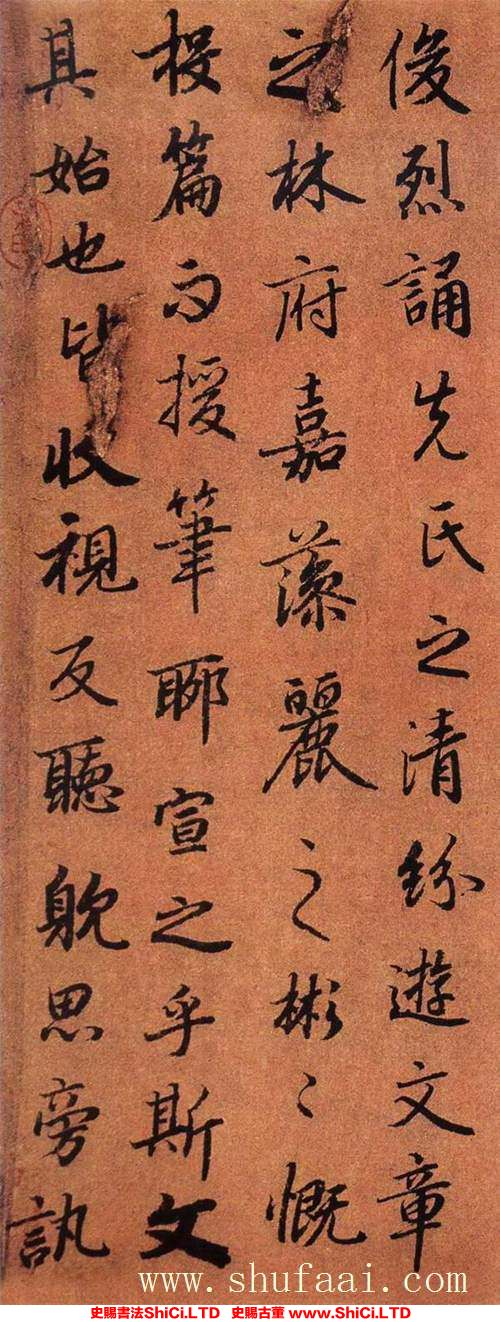 俊烈誦先氏之清紛遊文章
之林府嘉藻麗之彬〻慨
投篇而援筆聊宣之乎斯文
其始也皆收視反聽躭思旁訊
www.shufaai.com
史賜書法ShiCi.LTD 史賜古董 www.ShiCi.LTD